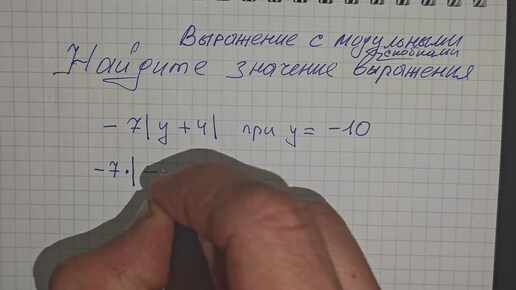 Выражение с модульными
скобками
Найдите значение выражения
- 7|y + 4| при y = -10
-7·|-